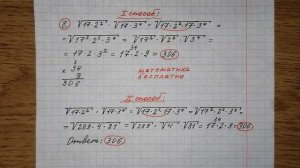 I способ:
8. √17·2² · √17·3⁴ = √17·2²·17·3⁴ =
= √17²·2²·3⁴ = √17² · √2² · √3⁴ =
= 17·2·3² = 17·2·9 = 306
34
× 34
9
306
математика
бесплатно
II способ:
√17·2² · √17·3⁴ = √17·2²·17·3⁴ = √17²·2²·3⁴ =
= √289·4·81 = √289 · √4 · √81 = 17·2·9 = 306
34
Ответ: 306